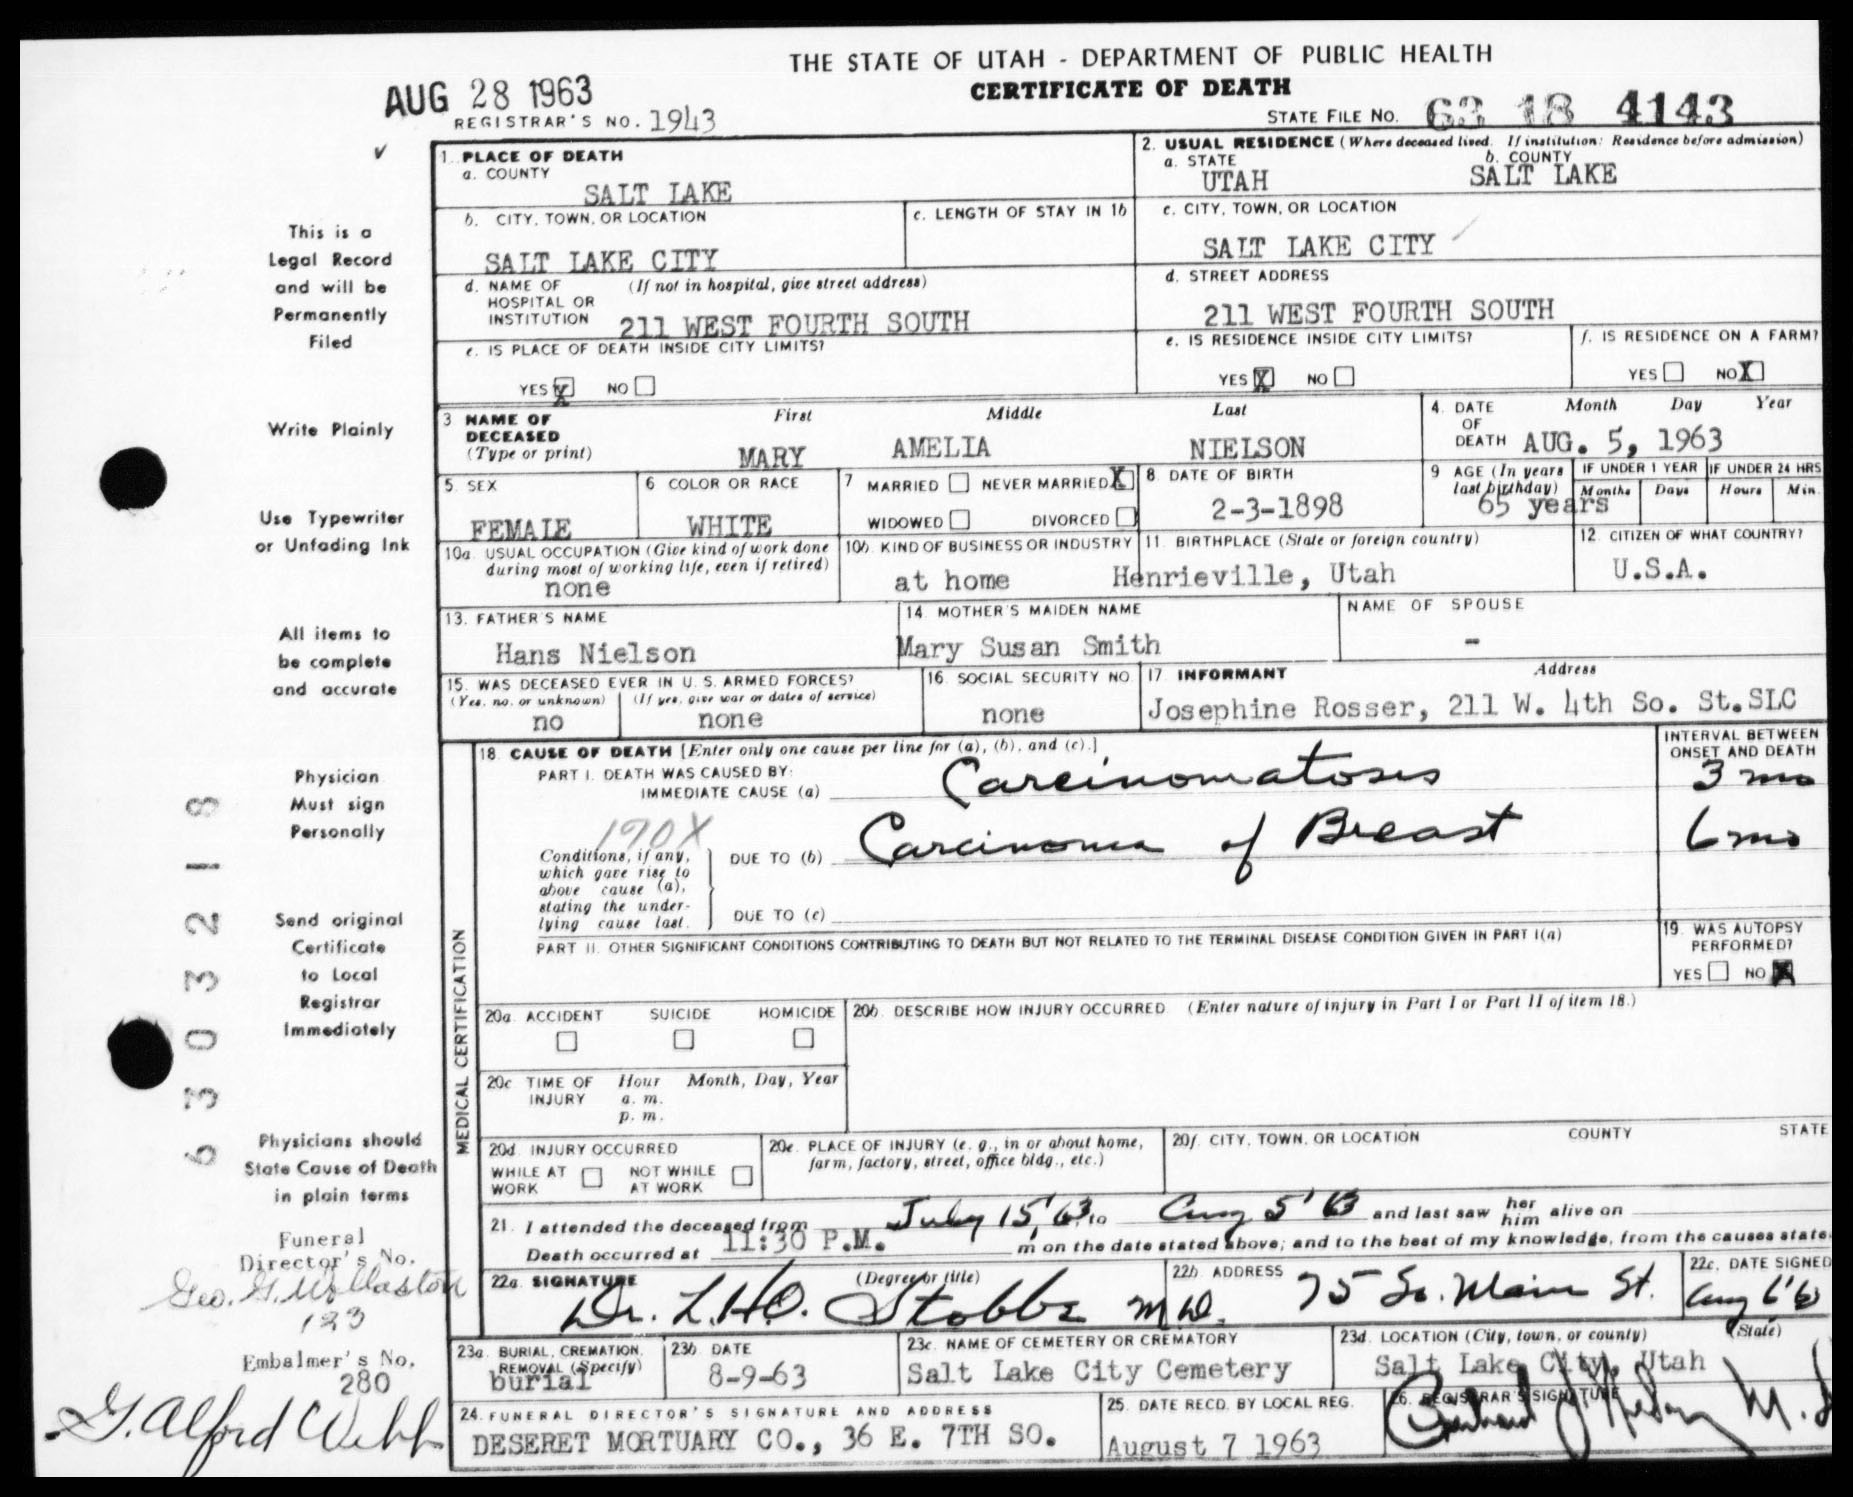 THE STATE OF UTAH - DEPARTMENT OF PUBLIC HEALTH
CERTIFICATE OF DEATH
AUG 28 1963
REGISTRAR'S NO. 1943
STATE FILE NO. 63 18 4143
✓
This is a
Legal Record
and will be
Permanently
Filed
Write Plainly
Use Typewriter
or Unfading Ink
All items to
be complete
and accurate
Physician
Must sign
Personally
Send original
Certificate
to Local
Registrar
Immediately
Physicians should
State Cause of Death
in plain terms
Funeral
Director's No.
Geo. G. Wollaston
123
Embalmer's No.
280
G. Alford Webb
6303218
1. PLACE OF DEATH
a. COUNTY
SALT LAKE
b. CITY, TOWN, OR LOCATION
SALT LAKE CITY
c. LENGTH OF STAY IN 1b
d. NAME OF HOSPITAL OR INSTITUTION (If not in hospital, give street address)
211 WEST FOURTH SOUTH
e. IS PLACE OF DEATH INSIDE CITY LIMITS?
YES X NO
2. USUAL RESIDENCE (Where deceased lived. If institution: Residence before admission)
a. STATE
UTAH
b. COUNTY
SALT LAKE
c. CITY, TOWN, OR LOCATION
SALT LAKE CITY
d. STREET ADDRESS
211 WEST FOURTH SOUTH
e. IS RESIDENCE INSIDE CITY LIMITS?
YES X NO
f. IS RESIDENCE ON A FARM?
YES NO X
3 NAME OF DECEASED (Type or print)
First Middle Last
MARY AMELIA NIELSON
4. DATE OF DEATH
Month Day Year
AUG. 5, 1963
5. SEX
FEMALE
6 COLOR OR RACE
WHITE
7 MARRIED NEVER MARRIED X
WIDOWED DIVORCED
8 DATE OF BIRTH
2-3-1898
9 AGE (In years last birthday)
65 years
IF UNDER 1 YEAR
Months Days
IF UNDER 24 HRS
Hours Min.
10a. USUAL OCCUPATION (Give kind of work done during most of working life, even if retired)
none
10b. KIND OF BUSINESS OR INDUSTRY
at home
11. BIRTHPLACE (State or foreign country)
Henrieville, Utah
12. CITIZEN OF WHAT COUNTRY?
U.S.A.
13. FATHER'S NAME
Hans Nielson
14. MOTHER'S MAIDEN NAME
Mary Susan Smith
NAME OF SPOUSE
-
15. WAS DECEASED EVER IN U. S. ARMED FORCES?
(Yes, no, or unknown) (If yes, give war or dates of service)
no none
16. SOCIAL SECURITY NO.
none
17. INFORMANT Address
Josephine Rosser, 211 W. 4th So. St.SLC
MEDICAL CERTIFICATION
18. CAUSE OF DEATH [Enter only one cause per line for (a), (b), and (c).]
INTERVAL BETWEEN ONSET AND DEATH
PART I. DEATH WAS CAUSED BY:
IMMEDIATE CAUSE (a) Carcinomatosis 3 mo
170X
Conditions, if any, which gave rise to above cause (a), stating the underlying cause last.
DUE TO (b) Carcinoma of Breast 6 mo
DUE TO (c)
PART II. OTHER SIGNIFICANT CONDITIONS CONTRIBUTING TO DEATH BUT NOT RELATED TO THE TERMINAL DISEASE CONDITION GIVEN IN PART I(a)
19. WAS AUTOPSY PERFORMED?
YES NO X
20a. ACCIDENT SUICIDE HOMICIDE
20b. DESCRIBE HOW INJURY OCCURRED (Enter nature of injury in Part I or Part II of item 18.)
20c TIME OF INJURY Hour Month, Day, Year
a. m.
p. m.
20d. INJURY OCCURRED
WHILE AT WORK NOT WHILE AT WORK
20e. PLACE OF INJURY (e. g., in or about home, farm, factory, street, office bldg., etc.)
20f. CITY, TOWN, OR LOCATION COUNTY STATE
21. I attended the deceased from July 15, '63 to Aug 5 '63 and last saw her him alive on
Death occurred at 11:30 P.M. m on the date stated above; and to the best of my knowledge, from the causes state
22a. SIGNATURE (Degree or title)
Dr. L.H.O. Stobbe M.D.
22b. ADDRESS
75 So. Main St.
22c. DATE SIGNED
Aug 6 '63
23a. BURIAL, CREMATION, REMOVAL (Specify)
burial
23b. DATE
8-9-63
23c. NAME OF CEMETERY OR CREMATORY
Salt Lake City Cemetery
23d. LOCATION (City, town, or county) (State)
Salt Lake City, Utah
24. FUNERAL DIRECTOR'S SIGNATURE AND ADDRESS
DESERET MORTUARY CO., 36 E. 7TH SO.
25. DATE RECD. BY LOCAL REG.
August 7 1963
26. REGISTRAR'S SIGNATURE